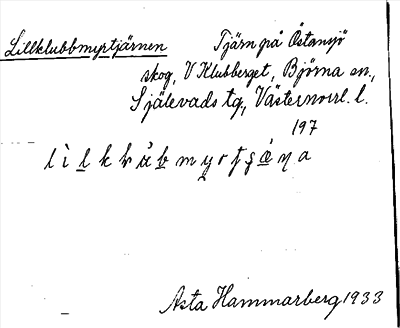 Lillklubbmyrtjärnen Tjärn på Östansjö
skog, V Klubberget, Björna sn.,
Själevads tg, Västernorrl. l.
197
Asta Hammarberg 1933